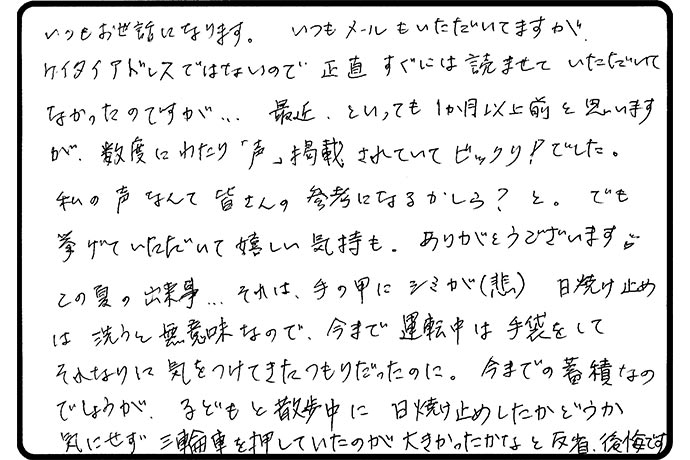 いつもお世話になります。 いつもメールもいただいてますが、
ケイタイアドレスではないので 正直 すぐには 読ませて いただいて
なかったのですが… 最近、といっても 1か月以上前 と 思います
が、数度に わたり 「声」掲載 されていて ビックリ! でした。
私の 声 なんて 皆さんの 参考に なるかしら? と。 でも
挙げて いただいて 嬉しい 気持も。 ありがとうございます
この 夏の 出来事… それは、手の甲に シミが(悲) 日焼け止め
は 洗うと 無意味 なので、今まで 運転中は 手袋を して
それなりに 気を つけてきた つもりだったのに。 今までの 蓄積 なの
でしょうが、子どもと 散歩中に 日焼け止めしたかどうか
気にせず 三輪車を 押していたのが 大きかったかな と 反省、後悔です